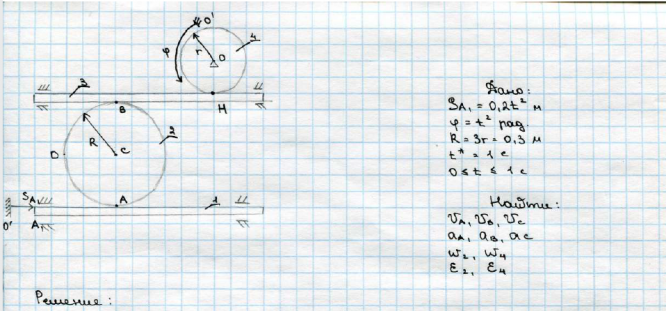 O'
4
r
O
φ
3
B
H
2
R
D
C
S_A₁
A
1
O'
A₁
Дано:
S_A₁ = 0,2t² м
φ = t² рад
R = 3r = 0,3 м
t* = 1 c
0 ≤ t ≤ 1 c
Найти:
V_A, V_B, V_C
a_A, a_B, a_C
ω₂, ω₄
ε₂, ε₄
Решение: